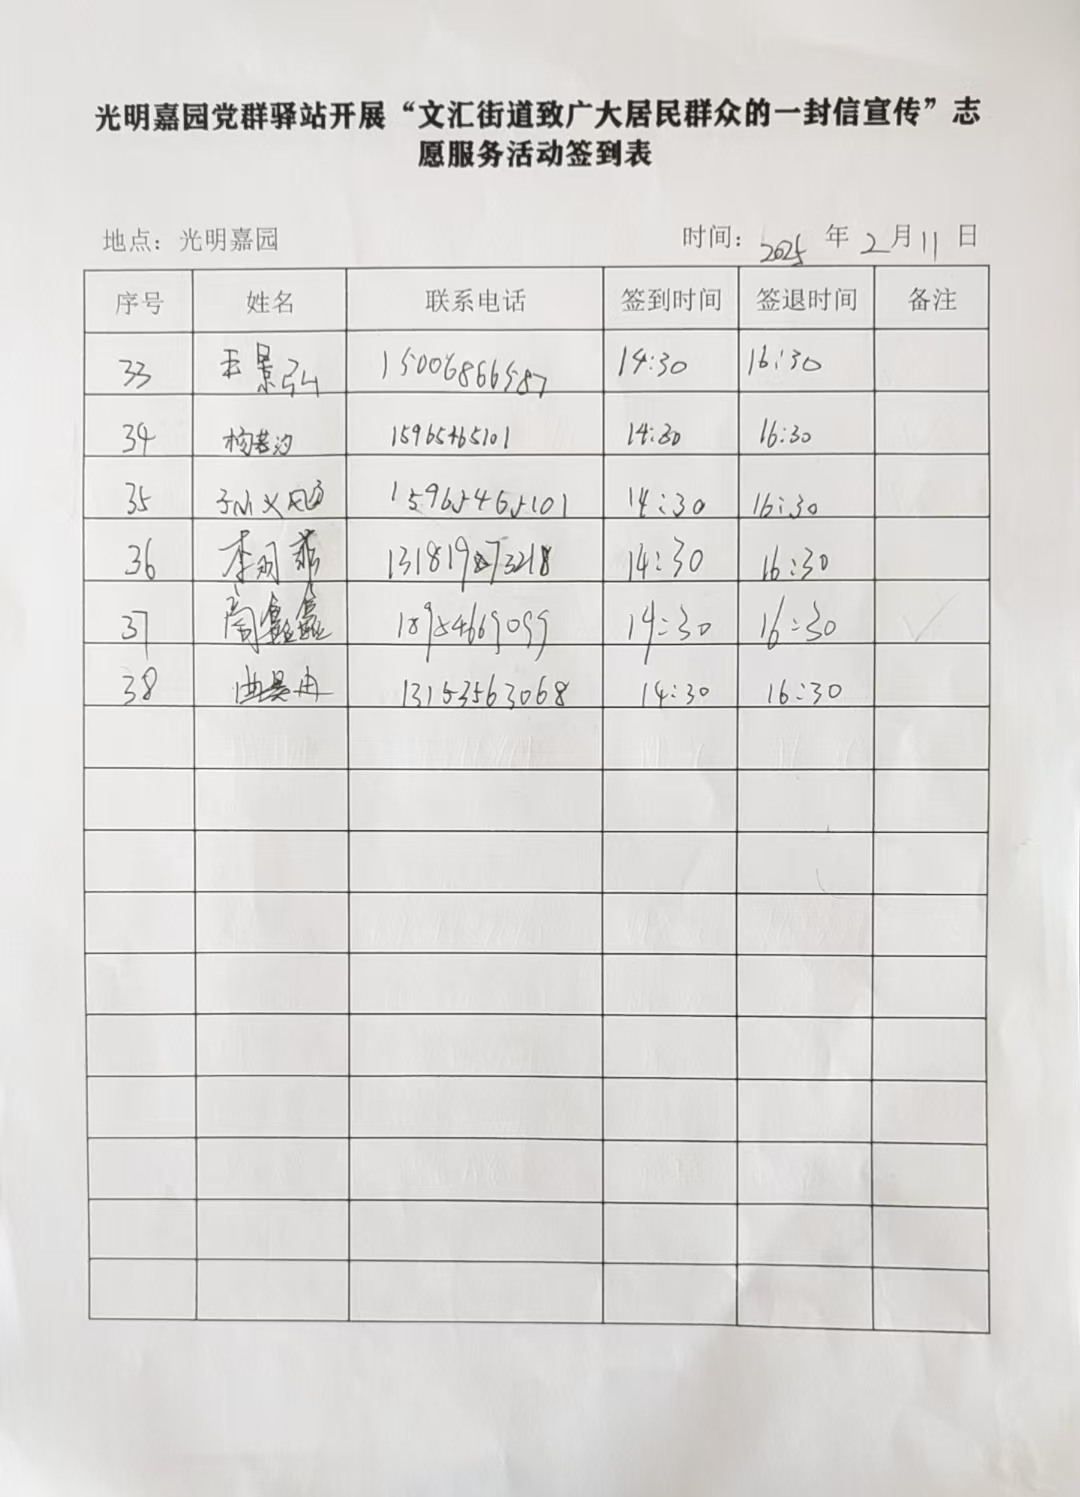 光明嘉园党群驿站开展“文汇街道致广大居民群众的一封信宣传”志
愿服务活动签到表
地点：光明嘉园 时间：2025 年 2 月 11 日
序号 姓名 联系电话 签到时间 签退时间 备注
33 王景弘 15006866587 14:30 16:30
34 杨若汐 15965465101 14:30 16:30
35 15965465101 14:30 16:30
36 李明菲 131819873218 14:30 16:30
37 18954669099 14:30 16:30
38 曲昊冉 13153563068 14:30 16:30